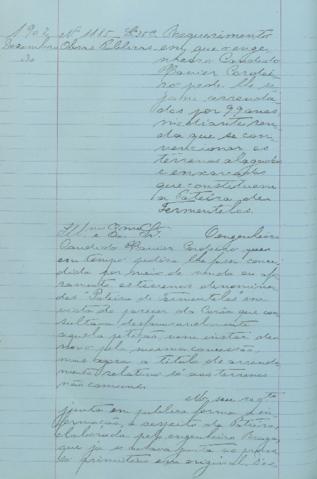 1902 Nº 1115 - Lº 30º Requerimento
Dezembro Obras Publicas em que o enge
30 nheiro Candido
Xavier Cordei
ro pede lhe se
jam arrenda
dos por 99 annos
mediante ren
da que se con
vencionar os
terrenos alagados
e enxarcados
que constituem
a Pateira de
Fermentelos.
Illmo Exmo Sr. O engenheiro
Candido Xavier Cordeiro quer
em tempo pedira lhe fosse conce
dida por meio de venda ou af
ramento, os terrenos denomina
dos Pateira de Fermentelos em
vista do parecer da Curia que con
sultava desfavoravelmente
aquella petição, vem instar de
novo pela mesma concessão,
mas agora a titulo de arrenda
mento relativo só aos terrenos
não communs.
No seu reqto
junta em publica forma a in
formação, a respeito da Pateira,
elaborada pelo engenheiro Braga,
que já estava junta ao proces
so primitivo em original.